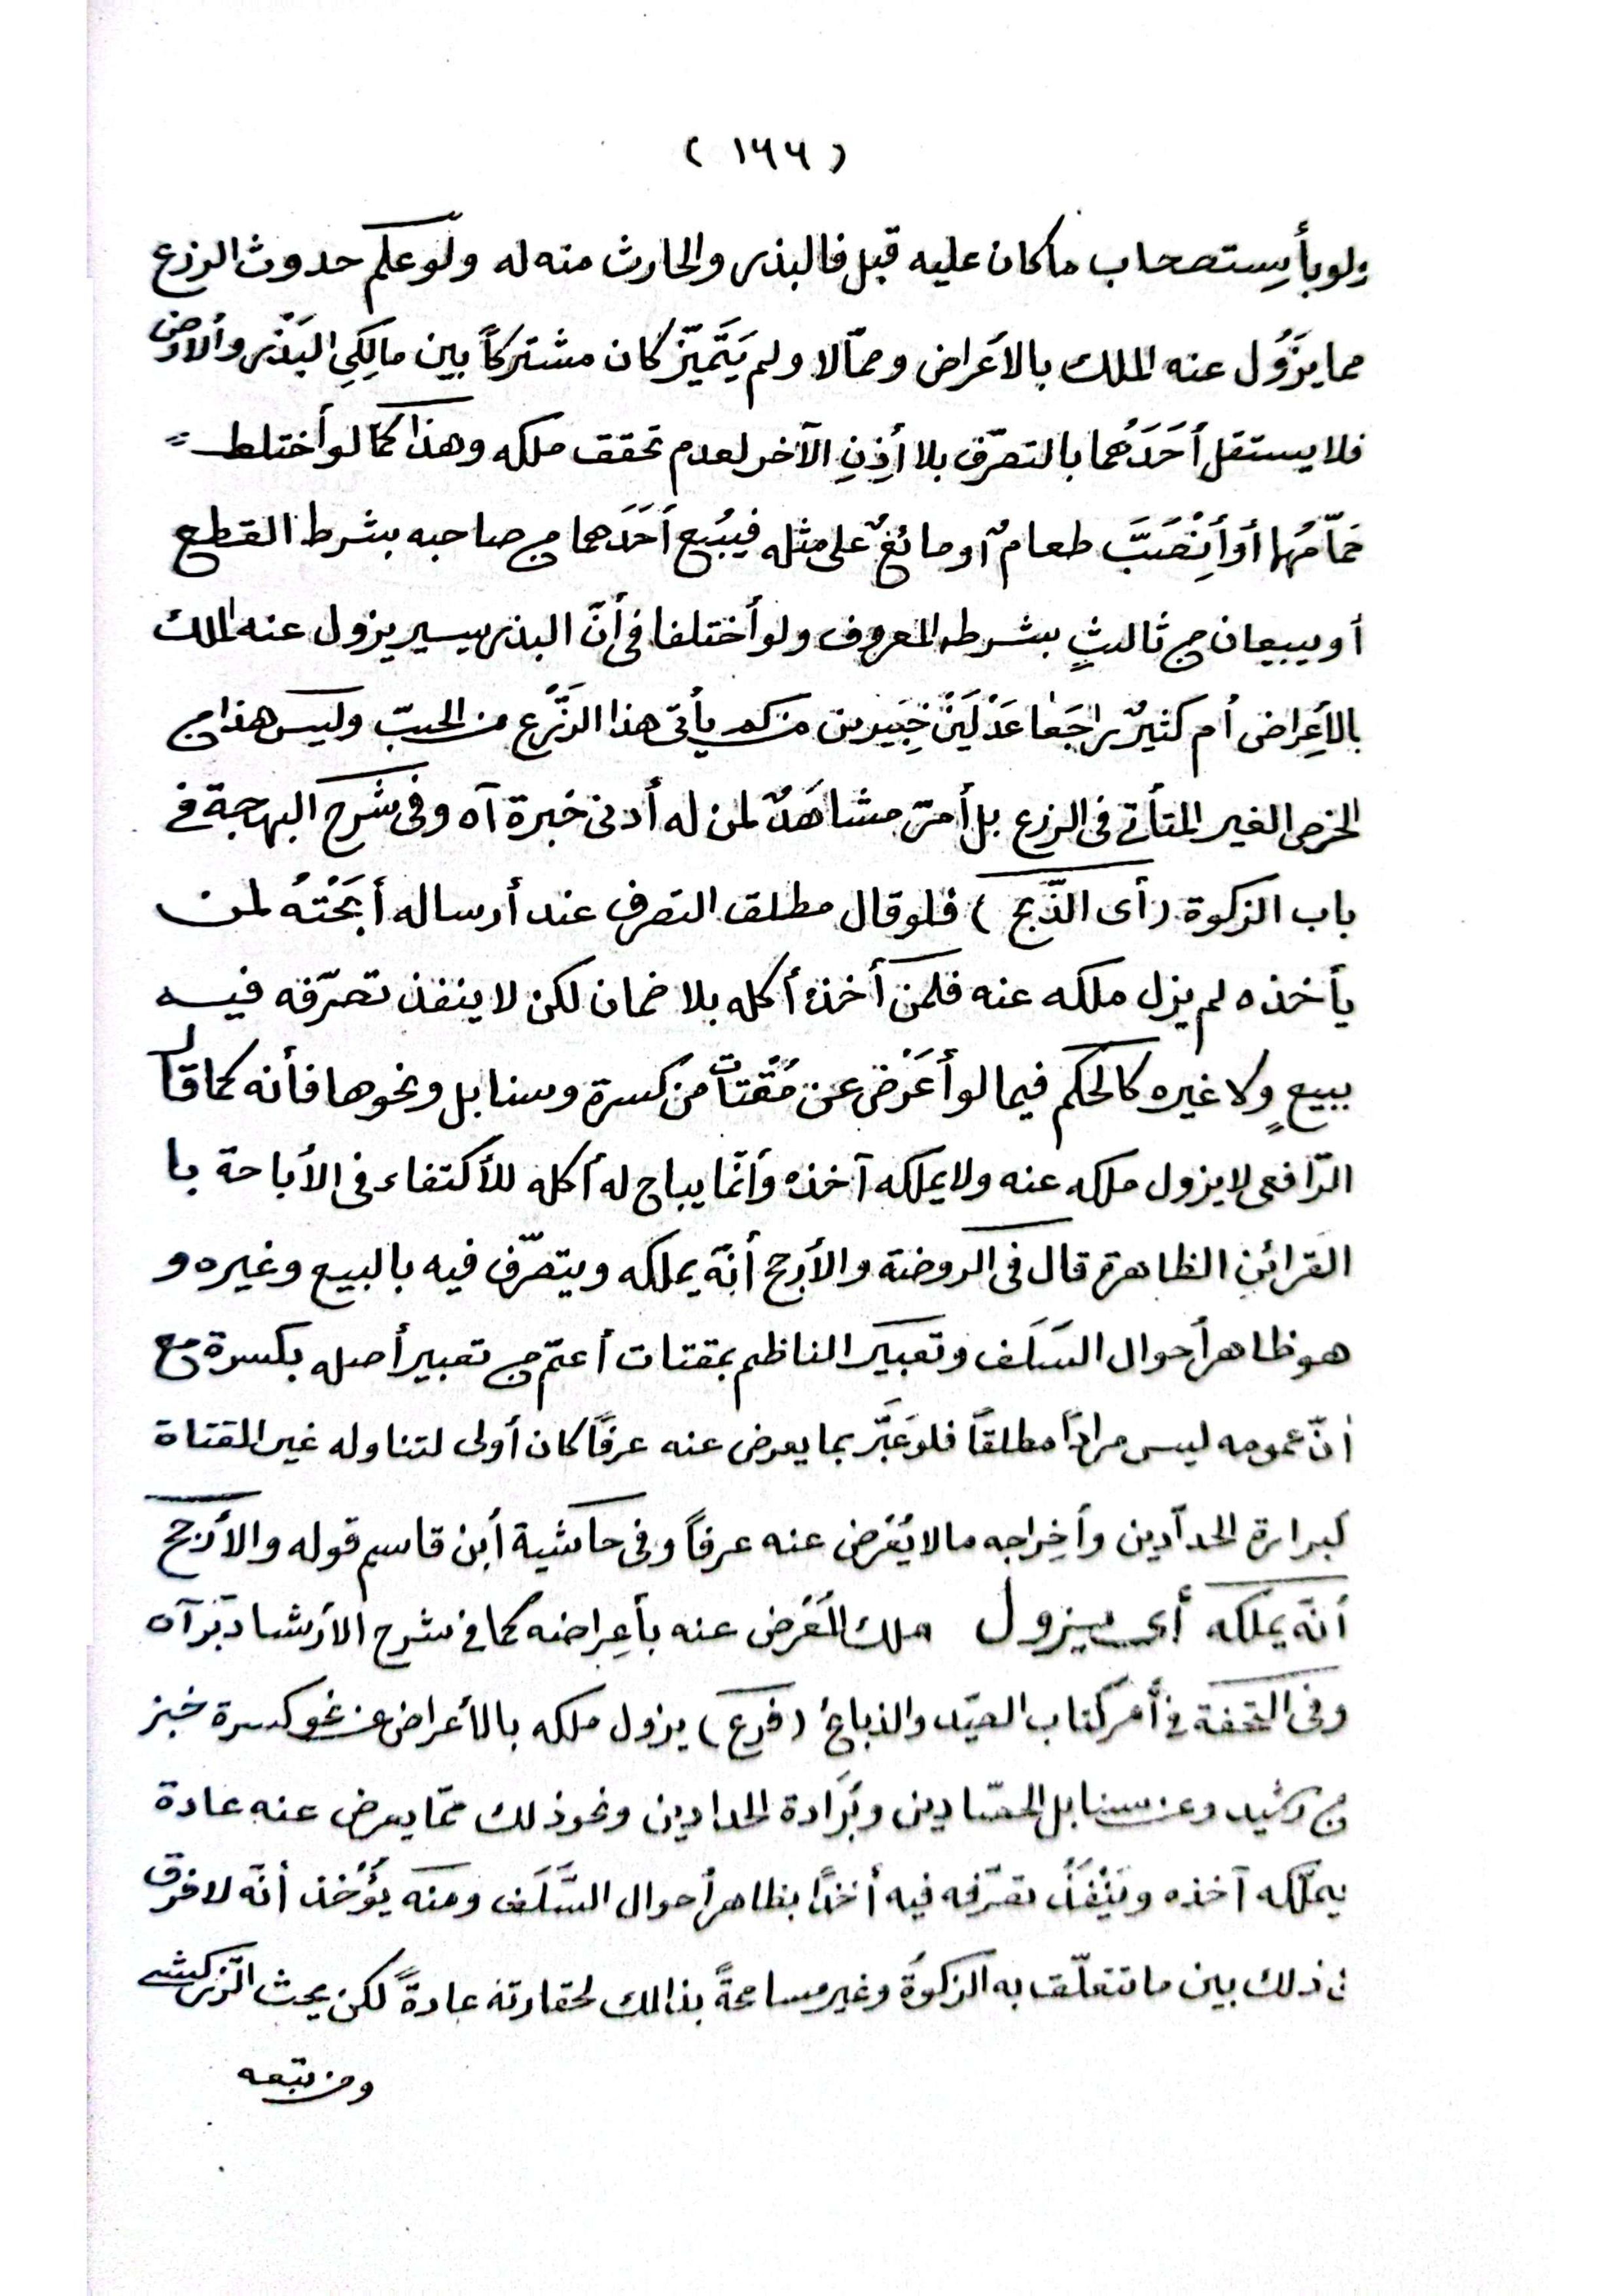 ( ١٦٦ )
ولو بأستصحاب ماكان عليه قبل فالبذر والحارث منه له ولو علم حدوث الزرع
مما يزول عنه الملك بالأعراض وممّا لا ولم يَتَميّز كان مشتركاً بين مالِكَيِ البَذْر والأرض
فلا يستقل أَحَدُهُما بالتصرّف بلا أِذِنِ الآخر لعدم تحقق ملكه وهذا كما لو أختلط =
حَمَامُهُا أو أَنْصَبَّ طعامٌ أو مائعٌ على مثله فيَبُيع أَحَدُهما من صاحبه بشرط القطع
أو يبيعان من ثالثٍ بشرطه المعروف ولو أختلفا فى أنّ البذر يسير يزول عنه الملك
بالأِعراض أم كثيرٌ راجَعا عَدْلَيَنْ خَبِيرين من كم يأتى هذا الزَّرْع من الحبّ وليس هذا من
الخرص الغير المتأتى فى الزرع بل أمرٌ مشاهَدٌ لمن له أدنى خبرة آه وفى شرح البهجة فى
باب الزكوة (أى الذّبح) فلو قال مطلق التصرف عند أرساله أبَحْتُهُ لمن
يأخذه لم يزل ملكه عنه فلمن أخذه أكله بلا ضمان لكن لا ينفذ تصرّفه فيه
ببيعٍ ولا غيره كالحكم فيما لو أَعَرْض عن مُقْتاتٍ من كسرة وسنابل ونحوها فأنه كما قال
الرّافعى لا يزول ملكه عنه ولا يملكه آخذه وأنّما يباح له أكله للأكتفاء فى الأباحة با
القرائن الظاهرة قال فى الروضة والأرجح أنّه يملكه ويتصرّف فيه بالبيع وغيره و
هو ظاهر أحوال السَلَف وتعبير الناظم بمقتات أعمّ من تعبير أصله بكسرة مع
أنّ عمومه ليس مراداً مطلقاً فلو عَبَّر بما يعرض عنه عرفاً كان أولى لتناوله غير المقتاة
كبرارة الحدّادين وأِخراجه مالا يُعْرَض عنه عرفاً وفى حاشية أبن قاسم قوله والأرجح
أنّه يملكه أى يزول ملك المُعْرض عنه بأِعراضه كما فى شرح الأرشاد بّر آه
وفى التحفة فى أخر كتاب الصيّد والذبائح (فرع) يزول ملكه بالأعراض عن نحو كسرة خبز
من رشيد وعن سنابل الحصّادين وبُرَادة الحدادين ونحو ذلك ممّا يعرض عنه عادة
يملّكه آخذه ويَنْفُذُ تصرّفه فيه أخذًا بظاهر أحوال السَّلَف ومنه يُؤْخذ أنّه لا فرق
فى ذلك بين ما تتعلّق به الزكوة وغيره مسامحةً بذالك لحقارته عادةً لكن بحث الزّركشى
ومن تبعه